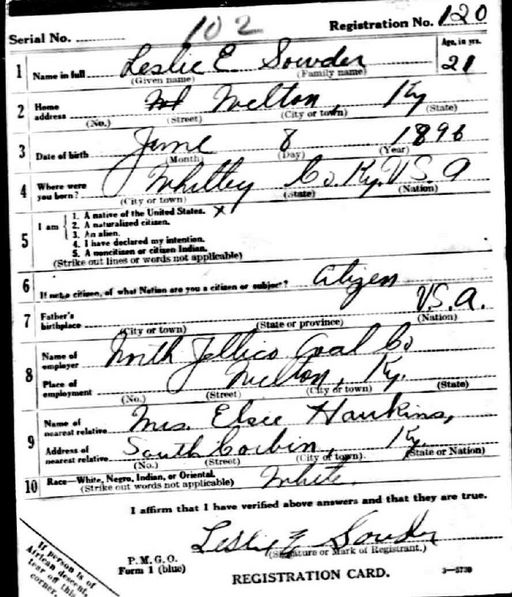 Serial No. 102 Registration No. 120
1 Name in full Leslie E Sowder Age, in yrs. 21
(Given name) (Family name)
2 Home address Wilton, Ky
(No.) (Street) (City or town) (State)
3 Date of birth June 8 1896
(Month) (Day) (Year)
4 Where were you born? Whitley Co. Ky. U.S.A
(City or town) (State) (Nation)
5 I am
1. A native of the United States. x
2. A naturalized citizen.
3. An alien.
4. I have declared my intention.
5. A noncitizen or citizen Indian.
(Strike out lines or words not applicable)
6 If not a citizen, of what Nation are you a citizen or subject? Citizen
7 Father's birthplace U.S.A.
(City or town) (State or province) (Nation)
8 Name of employer North Jellico Coal Co
Place of employment Wilton, Ky.
(No.) (Street) (City or town) (State)
9 Name of nearest relative Mrs. Elsie Hawkins,
Address of nearest relative South Corbin, Ky.
(No.) (Street) (City or town) (State or Nation)
10 Race—White, Negro, Indian, or Oriental. White.
(Strike out words not applicable)
I affirm that I have verified above answers and that they are true.
Leslie E Sowder
(Signature or Mark of Registrant.)
P. M. G. O.
Form 1 (blue)
REGISTRATION CARD.
3—5730
If person is of
African descent,
tear off this
corner.